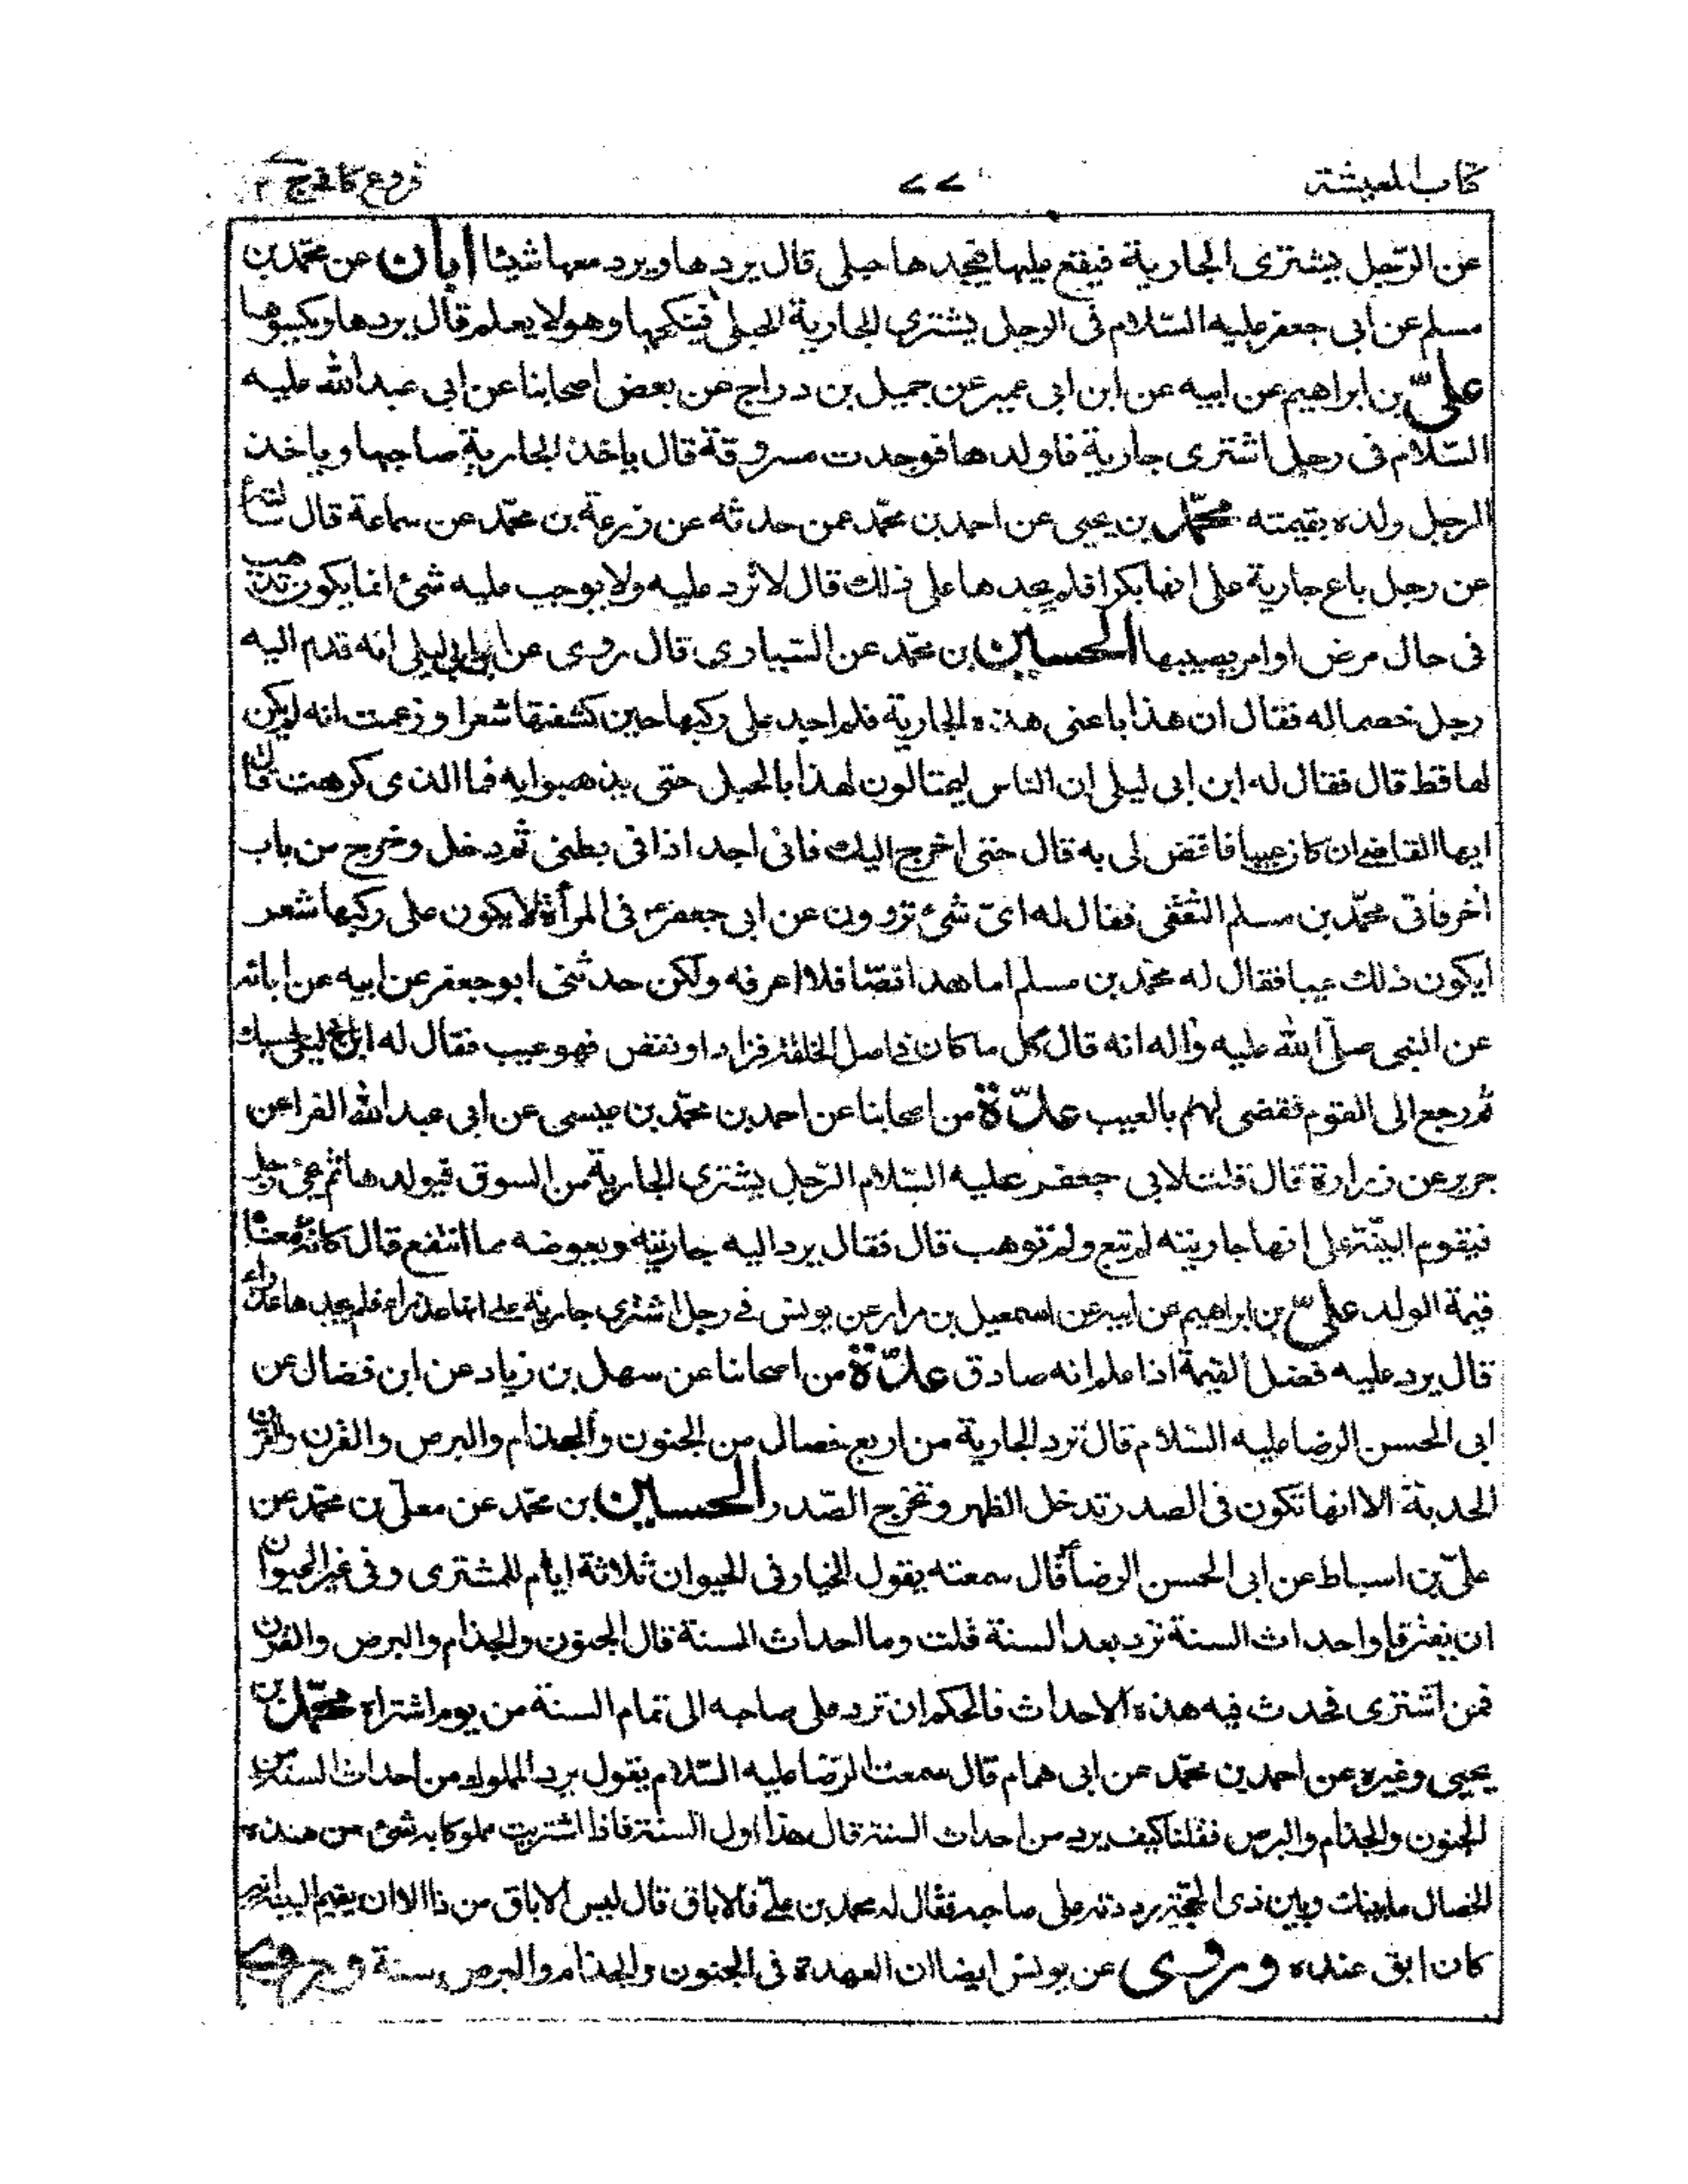 كتاب المعيشة ٧٧ فروع كافي ج ٢
عن الرّجل يشترى الجارية فيقع عليها فيجدها حبلى قال يردها ويرد معها شيئا ابان عن محمّد بن
مسلم عن ابى جعفر عليه السّلام فى الرجل يشترى الجارية الحبلى فينكحها وهو لا يعلم قال يردها ويكسوها
علىّ بن ابراهيم عن ابيه عن ابن ابى عمير عن جميل بن دراج عن بعض اصحابنا عن ابى عبد الله عليه
السّلام فى رجل اشترى جارية فاولدها فوجدت مسروقة قال ياخذ الجارية صاحبها وياخذ
الرجل ولده بقيمته محمّد بن يحيى عن احمد بن محمّد عمن حدثه عن زرعة بن محمّد عن سماعة قال
عن رجل باع جارية على انها بكرا فلم يجدها على ذلك قال لا ترد عليه ولا يوجب عليه شئ انما يكون تذهب
فى حال مرض او امر يصيبها الحسين بن محمّد عن السّيارى قال روى عن ابن ابى ليلى انه قدم اليه
رجل خصما له فقال ان هذا باعنى هذه الجارية فلم اجد على ركبها حين كشفتها شعرا وزعمت انه لم يكن
لها قط قال فقال له ابن ابى ليلى ان الناس ليحتالون لهذا بالحيل حتى يذهبوا به فما الذى كرهت قال
ايها القاضى ان كان عيبا فاقض لى به قال حتى اخرج اليك فانى اجد اذا فى بطنى ثم دخل وخرج من باب
اخر فاتى محمّد بن مسلم الثقفى فقال له اىّ شئ تروون عن ابى جعفر ع فى المرأة لا يكون على ركبها شعر
ايكون ذلك عيبا فقال له محمّد بن مسلم اما هذا نصّا فلا اعرفه ولكن حدثنى ابو جعفر عن ابيه عن ابائه
عن النبى صلّى الله عليه واله انه قال كل ما كان فى اصل الخلقة فزاد او نقص فهو عيب فقال له ابن ابى ليلى حسبك
ثم رجع الى القوم فقضى لهم بالعيب عدّة من اصحابنا عن احمد بن محمّد بن عيسى عن ابى عبد الله الفرا عن
جرير عن زرارة قال قلت لابى جعفر عليه السّلام الرّجل يشترى الجارية من السوق فيولدها ثم يجئ رجل
فيقوم البيّنة على انها جاريته لم تبع ولم توهب قال فقال يرد اليه جاريته ويعوضه مما انتفع قال كانه معناه
قيمة الولد علىّ بن ابراهيم عن ابيه عن اسمعيل بن مرار عن يونس فى رجل اشترى جارية على انها عذراء فلم يجدها عذراء
قال يرد عليه فضل القيمة اذا علم انه صادق عدّة من اصحابنا عن سهل بن زياد عن ابن فضال عن
ابى الحسن الرضا عليه السّلام قال ترد الجارية من اربع خصال من الجنون والجذام والبرص والقرن والقرن
الحدبة الا انها تكون فى الصدر تدخل الظهر وتخرج الصّدر الحسين بن محمّد عن معلّى بن محمّد عن
علىّ بن اسباط عن ابى الحسن الرضا ع قال سمعته يقول الخيار فى الحيوان ثلاثة ايام للمشترى وفى غير الحيوان
ان يفترقا واحداث السنة ترد بعد السنة قلت وما احداث السنة قال الجنون والجذام والبرص والقرن
فمن اشترى فحدث فيه هذه الاحداث فالحكم ان ترد على صاحبه الى تمام السنة من يوم اشتراه محمّد بن
يحيى وغيره عن احمد بن محمّد عن ابى همام قال سمعت الرّضا عليه السّلام يقول يرد المملوك من احداث السنة من
الجنون والجذام والبرص فقلنا كيف يرد من احداث السنة قال هذا اول السنة فاذا اشتريت مملوكا به شئ من هذه
الخصال ما بينك وبين ذى الحجّة رددته على صاحبه فقال له محمد بن علىّ فالاباق قال ليس الاباق من ذا الا ان يقيم البينة انه
كان ابق عنده وروى عن يونس ايضا ان العهدة فى الجنون والجذام والبرص سنة وروى